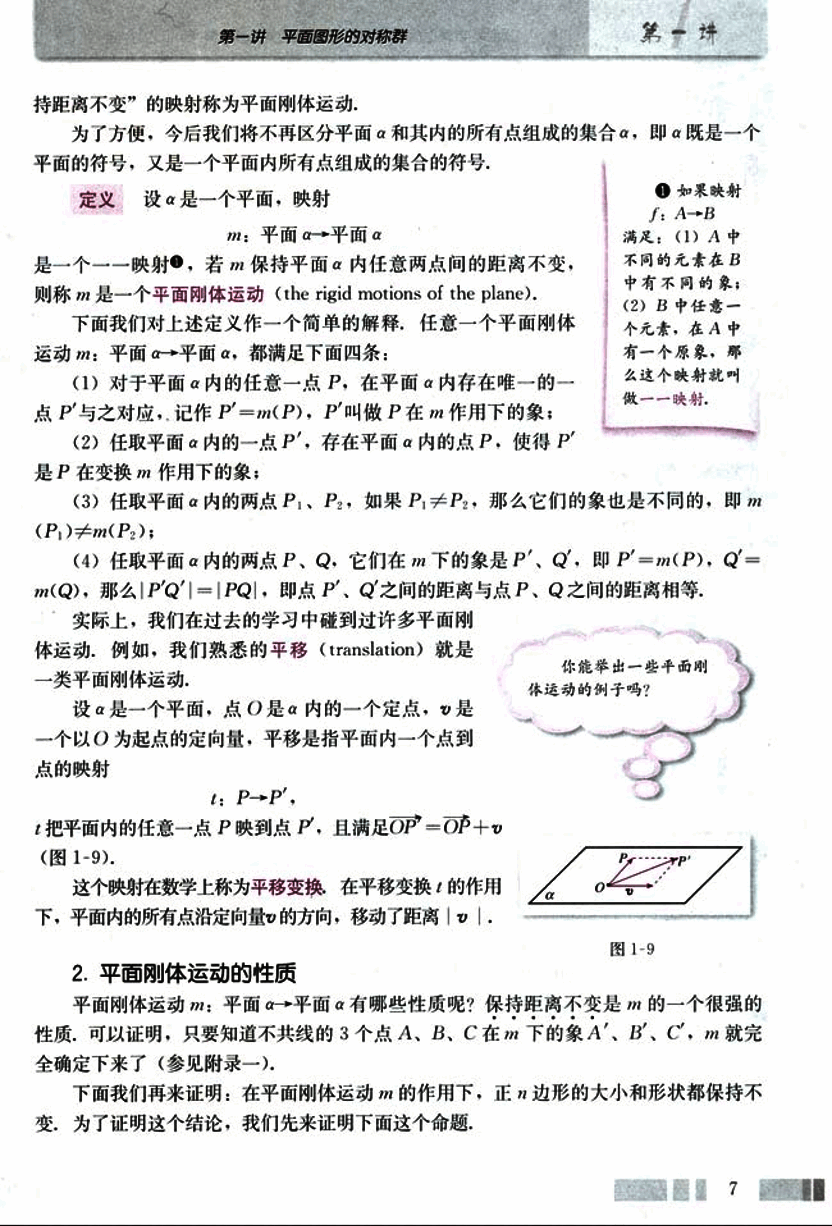 第一讲 平面图形的对称群
第一讲
持距离不变”的映射称为平面刚体运动.
为了方便，今后我们将不再区分平面α和其内的所有点组成的集合α，即α既是一个
平面的符号，又是一个平面内所有点组成的集合的符号.
定义 设α是一个平面，映射
m：平面α→平面α
是一个一一映射❶，若 m 保持平面α内任意两点间的距离不变，
则称 m 是一个平面刚体运动（the rigid motions of the plane）.
下面我们对上述定义作一个简单的解释. 任意一个平面刚体
运动 m：平面α→平面α，都满足下面四条：
（1）对于平面α内的任意一点 P，在平面α内存在唯一的一
点 P′与之对应，记作 P′=m(P)，P′叫做 P 在 m 作用下的象；
（2）任取平面α内的一点 P′，存在平面α内的点 P，使得 P′
是 P 在变换 m 作用下的象；
❶ 如果映射
f：A→B
满足：（1）A 中
不同的元素在 B
中有不同的象；
（2）B 中任意一
个元素，在 A 中
有一个原象，那
么这个映射就叫
做一一映射.
（3）任取平面α内的两点 P₁、P₂，如果 P₁≠P₂，那么它们的象也是不同的，即 m
(P₁)≠m(P₂)；
（4）任取平面α内的两点 P、Q，它们在 m 下的象是 P′、Q′，即 P′=m(P)，Q′=
m(Q)，那么|P′Q′|=|PQ|，即点 P′、Q′之间的距离与点 P、Q 之间的距离相等.
实际上，我们在过去的学习中碰到过许多平面刚
体运动. 例如，我们熟悉的平移（translation）就是
一类平面刚体运动.
你能举出一些平面刚
体运动的例子吗？
设α是一个平面，点 O 是α内的一个定点，v 是
一个以 O 为起点的定向量，平移是指平面内一个点到
点的映射
t：P→P′，
t 把平面内的任意一点 P 映到点 P′，且满足OP′=OP+v
（图 1-9）.
这个映射在数学上称为平移变换. 在平移变换 t 的作用
下，平面内的所有点沿定向量v的方向，移动了距离｜v｜.
P P′
O v
α
图 1-9
2. 平面刚体运动的性质
平面刚体运动 m：平面α→平面α有哪些性质呢？保持距离不变是 m 的一个很强的
性质. 可以证明，只要知道不共线的 3 个点 A、B、C 在 m 下的象 A′、B′、C′，m 就完
全确定下来了（参见附录一）.
下面我们再来证明：在平面刚体运动 m 的作用下，正 n 边形的大小和形状都保持不
变. 为了证明这个结论，我们先来证明下面这个命题.
7